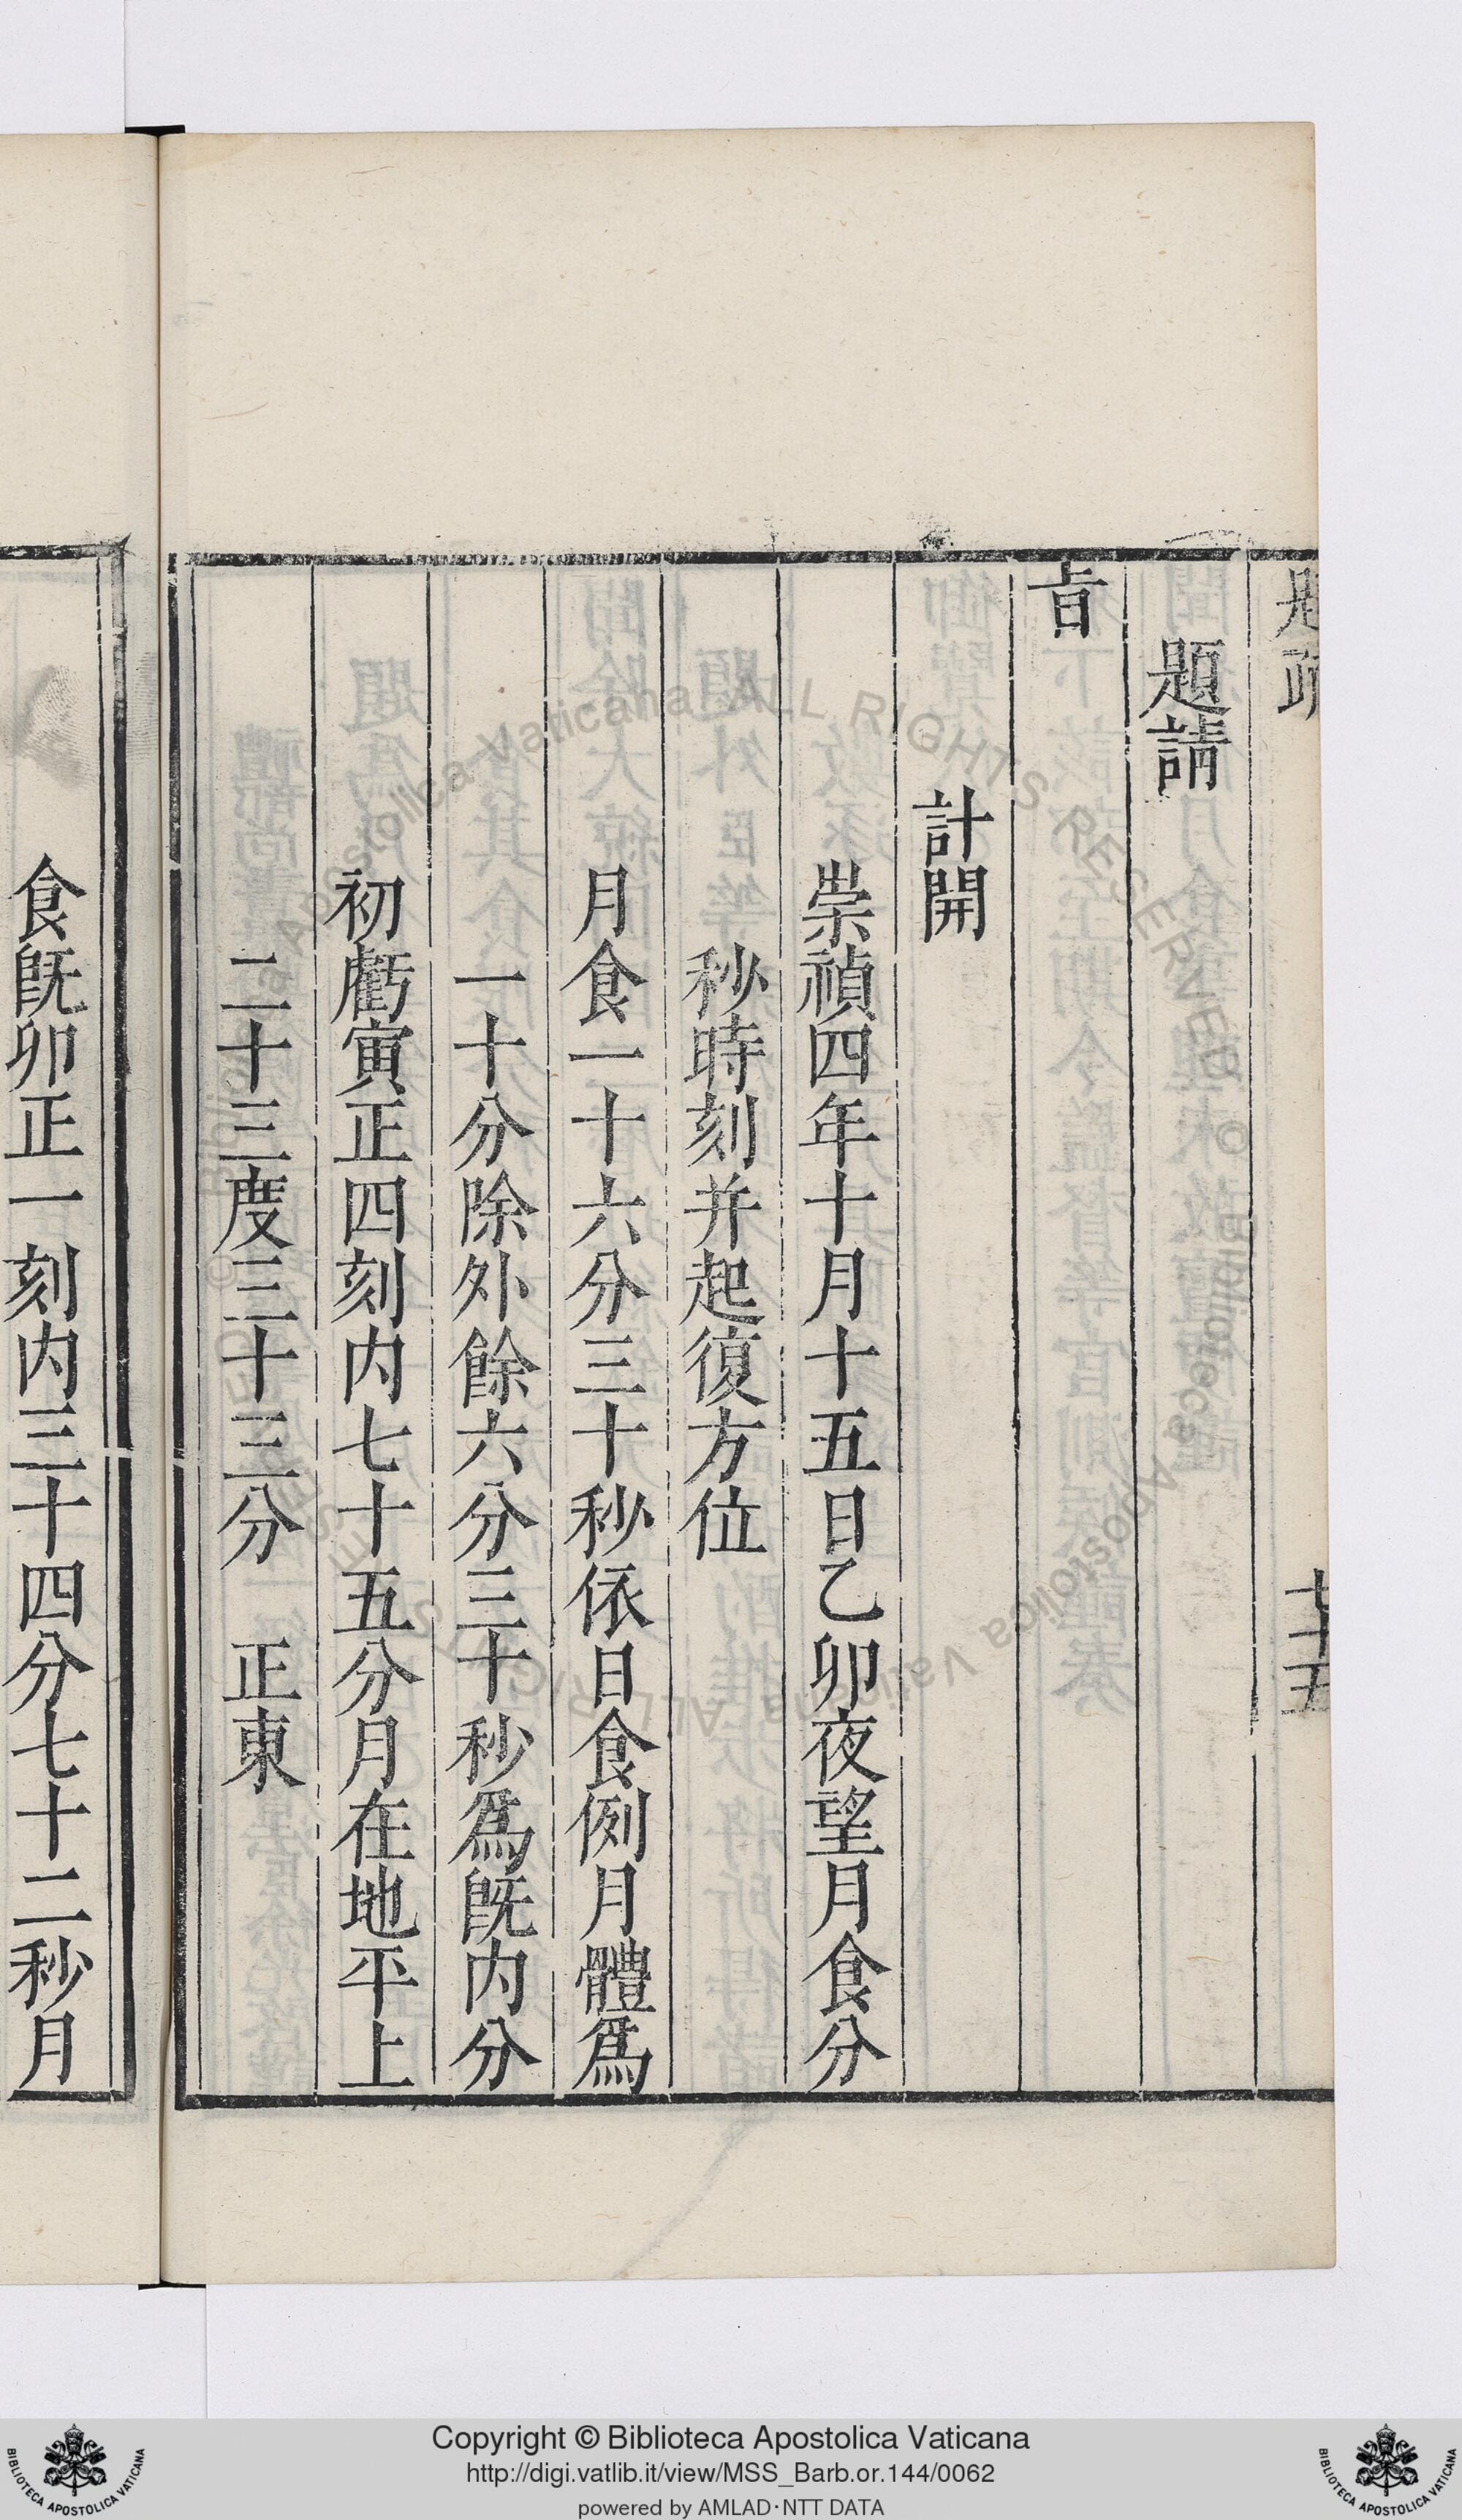 題請
旨
計開
崇禎四年十月十五日乙卯夜望月食分
秒時刻并起復方位
月食一十六分三十秒依日食例月體爲
一十分除外餘六分三十秒爲既内分
初虧寅正四刻内七十五分月在地平上
二十三度三十三分　正東
食既卯正一刻内三十四分七十二秒月
Copyright © Biblioteca Apostolica Vaticana
http://digi.vatlib.it/view/MSS_Barb.or.144/0062
powered by AMLAD·NTT DATA
BIBLIOTECA APOSTOLICA VATICANA
BIBLIOTECA APOSTOLICA VATICANA